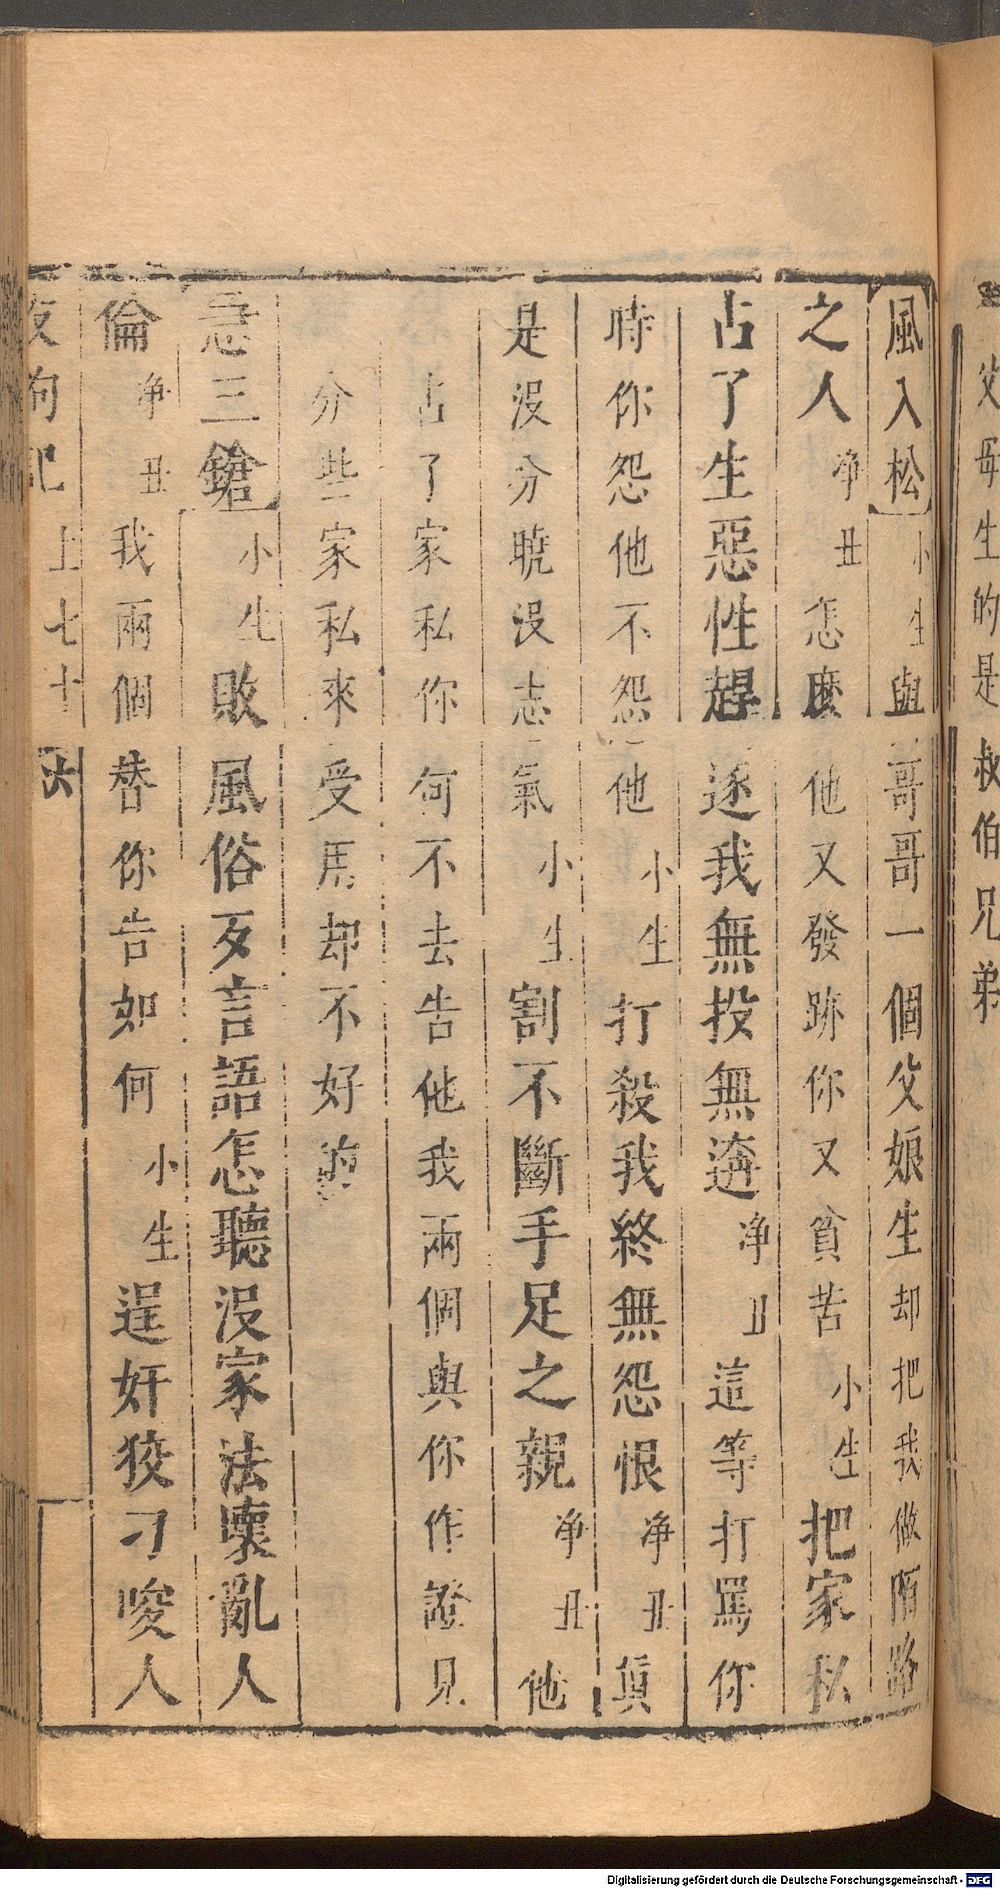 父母生的是叔伯兄弟
風入松小生與哥哥一個父娘生却把我做陌路
之人净丑怎麼他又發跡你又貧苦小生把家私
占了生惡性趕逐我無投無遴净丑這等打罵你
時你怨他不怨他小生打殺我終無怨恨净丑眞
是没分曉没志氣小生割不斷手足之親净丑他
占了家私你何不去告他我兩個與你作證見
分些家私來受用却不好
急三鎗小生敗風俗歹言語怎聽没家法壞亂人
倫净丑我兩個替你告如何小生逞奸狡刁唆人
殺狗記上七十
Digitalisierung gefördert durch die Deutsche Forschungsgemeinschaft - DFG